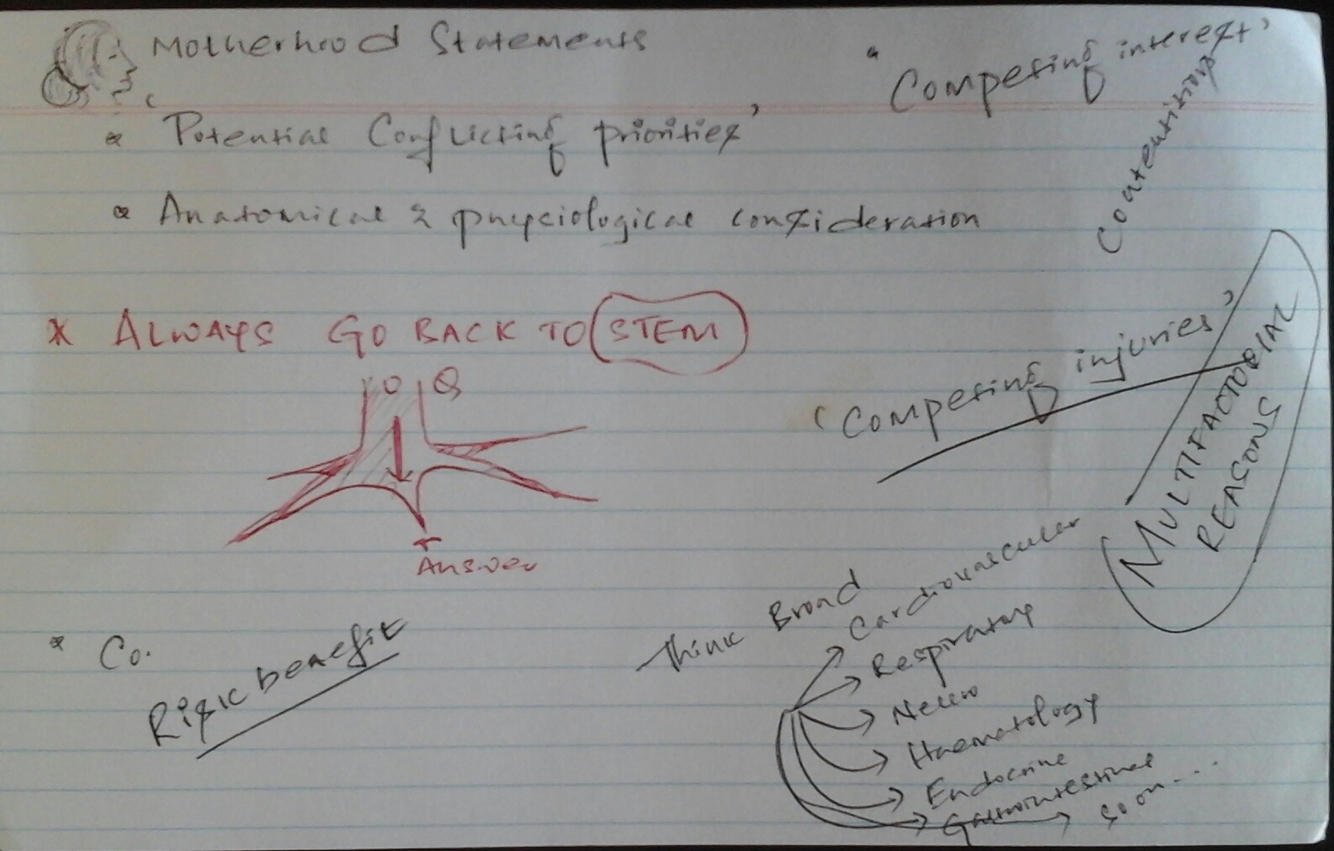 Motherhood Statements
* Potential Conflicting priorities'
"Competing interest'
Contentition
* Anatomical & phyciological consideration
* ALWAYS GO BACK TO STEM
Q
Answer
'Competing injuries'
MULTIFACTORIAL
REASONS
* Co.
Risk benefit
Think Broad
Cardiovascular
Respiratory
Neuro
Haematology
Endocrine
Gastrointestinal
So on....